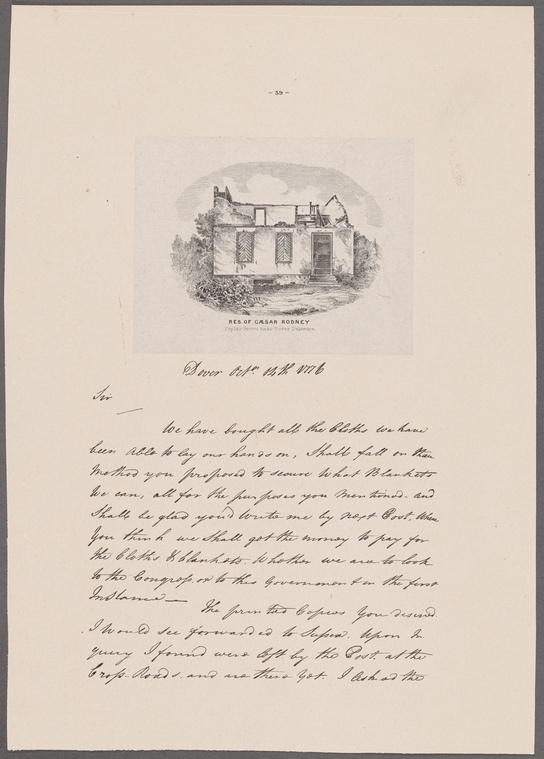 - 39 -
RES OF CÆSAR RODNEY
Dover Octr. 14th 1776
Sir
We have bought all the Cloths we have
been able to lay our hands on, Shall fall on the
Method you proposed to secure What Blankets
We can, all for the purposes you mentioned. and
Shall be glad you'd Write me by next Post, When
You think we Shall get the money to pay for
the Cloths & blankets. Whether we are to look
to the Congress, or to this Government in the first
Instance —
The printed Copies You desired
I Would see forwarded to Sussex. Upon In-
quiry I found were left by the Post. at the
Cross-Roads. and are there Yet. I asked the